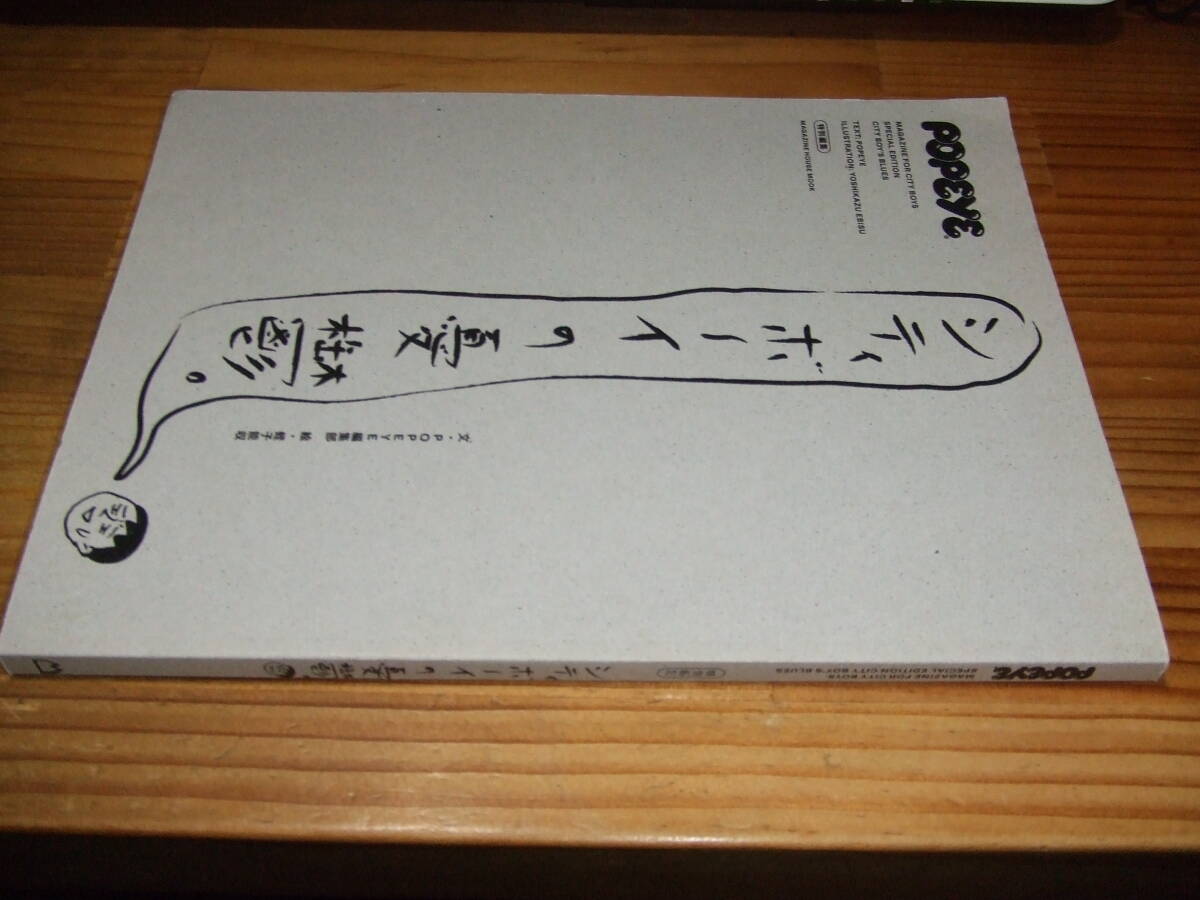 POPEYE
MAGAZINE FOR CITY BOYS
SPECIAL EDITION
CITY BOY'S BLUES
TEXT: POPEYE
ILLUSTRATION: YOSHIKAZU EBISU
特別編集
MAGAZINE HOUSE MOOK
シティボーイの憂鬱。
文・POPEYE編集部 絵・蛭子能収
POPEYE
MAGAZINE FOR CITY BOYS
SPECIAL EDITION CITY BOY'S BLUES
特別編集
シティボーイの憂鬱。